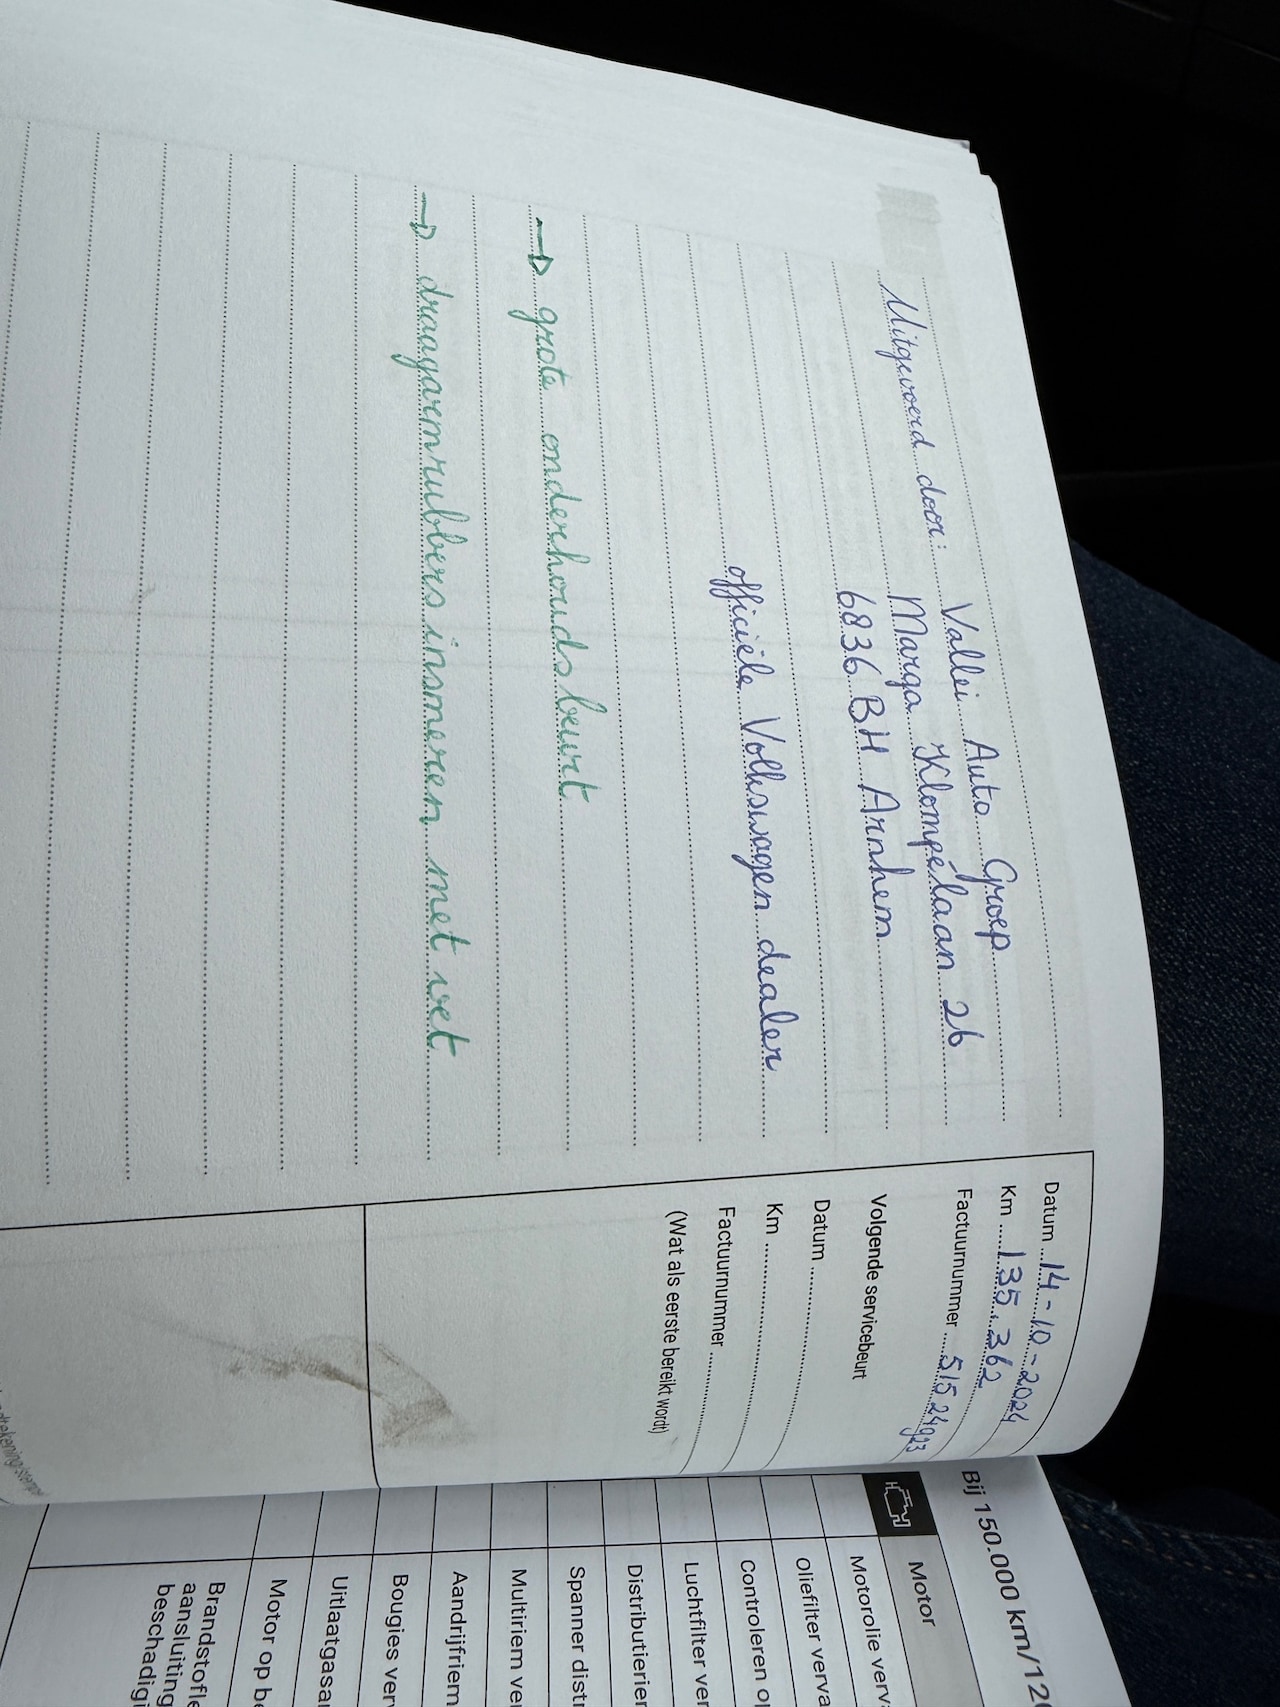 Uitgevoerd door: Vallei Auto Groep
Marga Klompélaan 26
6836 BH Arnhem
officiële Volkswagen dealer
→ grote onderhoudsbeurt
→ draagarmrubbers insmeren met vet
Datum 14-10-2024
Km 135.362
Factuurnummer 51524923
Volgende servicebeurt
Datum
Km
Factuurnummer
(Wat als eerste bereikt wordt)
Bij 150.000 km/12
Motor
Motorolie verv
Oliefilter verva
Controleren op
Luchtfilter ver
Distributierie
Spanner distr
Multiriem ver
Aandrijfriem
Bougies ver
Uitlaatgasa
Motor op be
Brandstofle
aansluiting
beschadigi